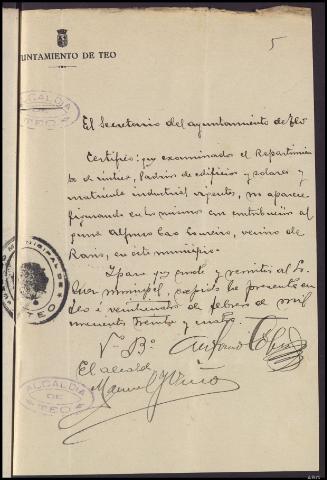 5
AYUNTAMIENTO DE TEO
ALCALDIA
TEO
El Secretario del ayuntamiento de Teo
Certifico: que examinados el Repartimien
to de rústica, Padrón de edificios y solares y
matrícula industrial vigentes, no aparece
figurando en los mismos con contribución al
guna Alfonso Cao Loureiro, vecino de
Raris, en este municipio.
Y para que conste y remitir al Sr.
Juez municipal, expido la presente en
Teo á veinticuatro de febrero de mil
novecientos treinta y cuatro.
Vº Bº
El alcalde
Manuel
ALCALDIA
DE
TEO